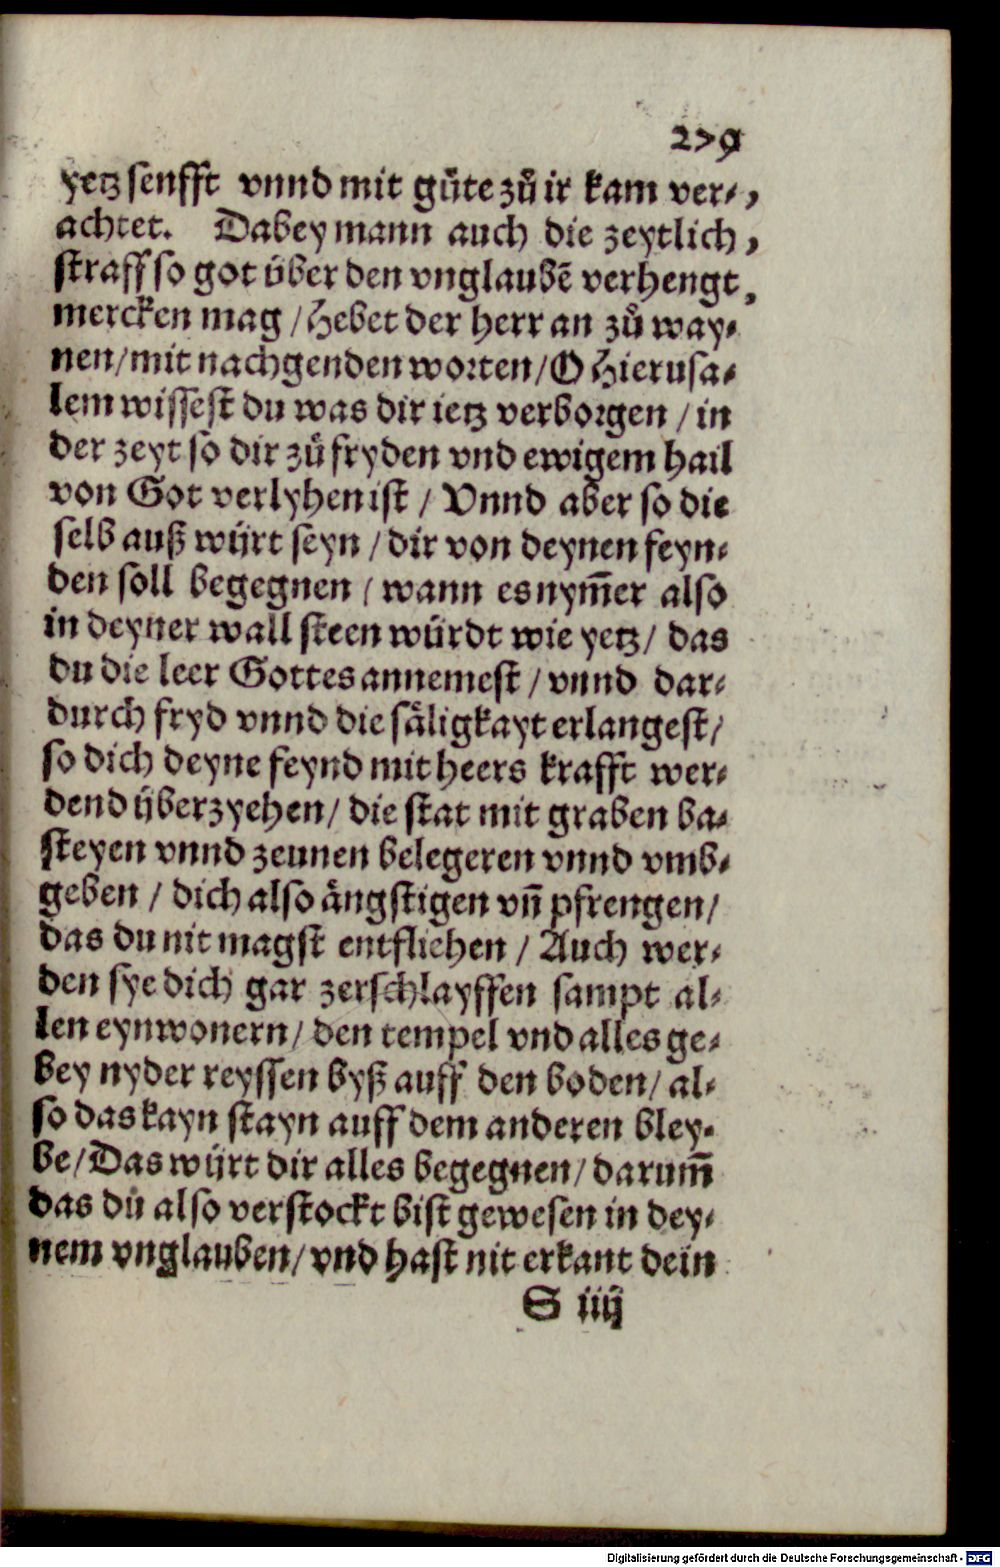 279
yetz senfft vnnd mit guͤte zuͦ ir kam ver-,
achtet. Dabey mann auch die zeytlich,
straff so got über den vnglaubē verhengt,
mercken mag / Hebet der herr an zuͦ way-
nen/mit nachgenden worten/O Hierusa-
lem wissest du was dir ietz verborgen / in
der zeyt so dir zuͦ fryden vnd ewigem hail
von Got verlyhen ist / Vnnd aber so die
selb auß wijrt seyn / dir von deynen feyn-
den soll begegnen / wann es nym̄er also
in deyner wall steen würdt wie yetz/ das
du die leer Gottes annemest / vnnd dar-
durch fryd vnnd die säligkayt erlangest/
so dich deyne feynd mit heers krafft wer-
dend ijberzyehen/ die stat mit graben ba-
steyen vnnd zeunen belegeren vnnd vmb-
geben / dich also ängstigen vn̄ pfrengen/
das du nit magst entfliehen / Auch wer-
den sye dich gar zerschlayffen sampt al-
len eynwonern/ den tempel vnd alles ge-
bey nyder reyssen byß auff den boden/ al-
so das kayn stayn auff dem anderen bley-
be/Das wijrt dir alles begegnen/ darum̄
das du also verstockt bist gewesen in dey-
nem vnglauben/ vnd hast nit erkant dein
S iiij
Digitalisierung gefördert durch die Deutsche Forschungsgemeinschaft - DFG